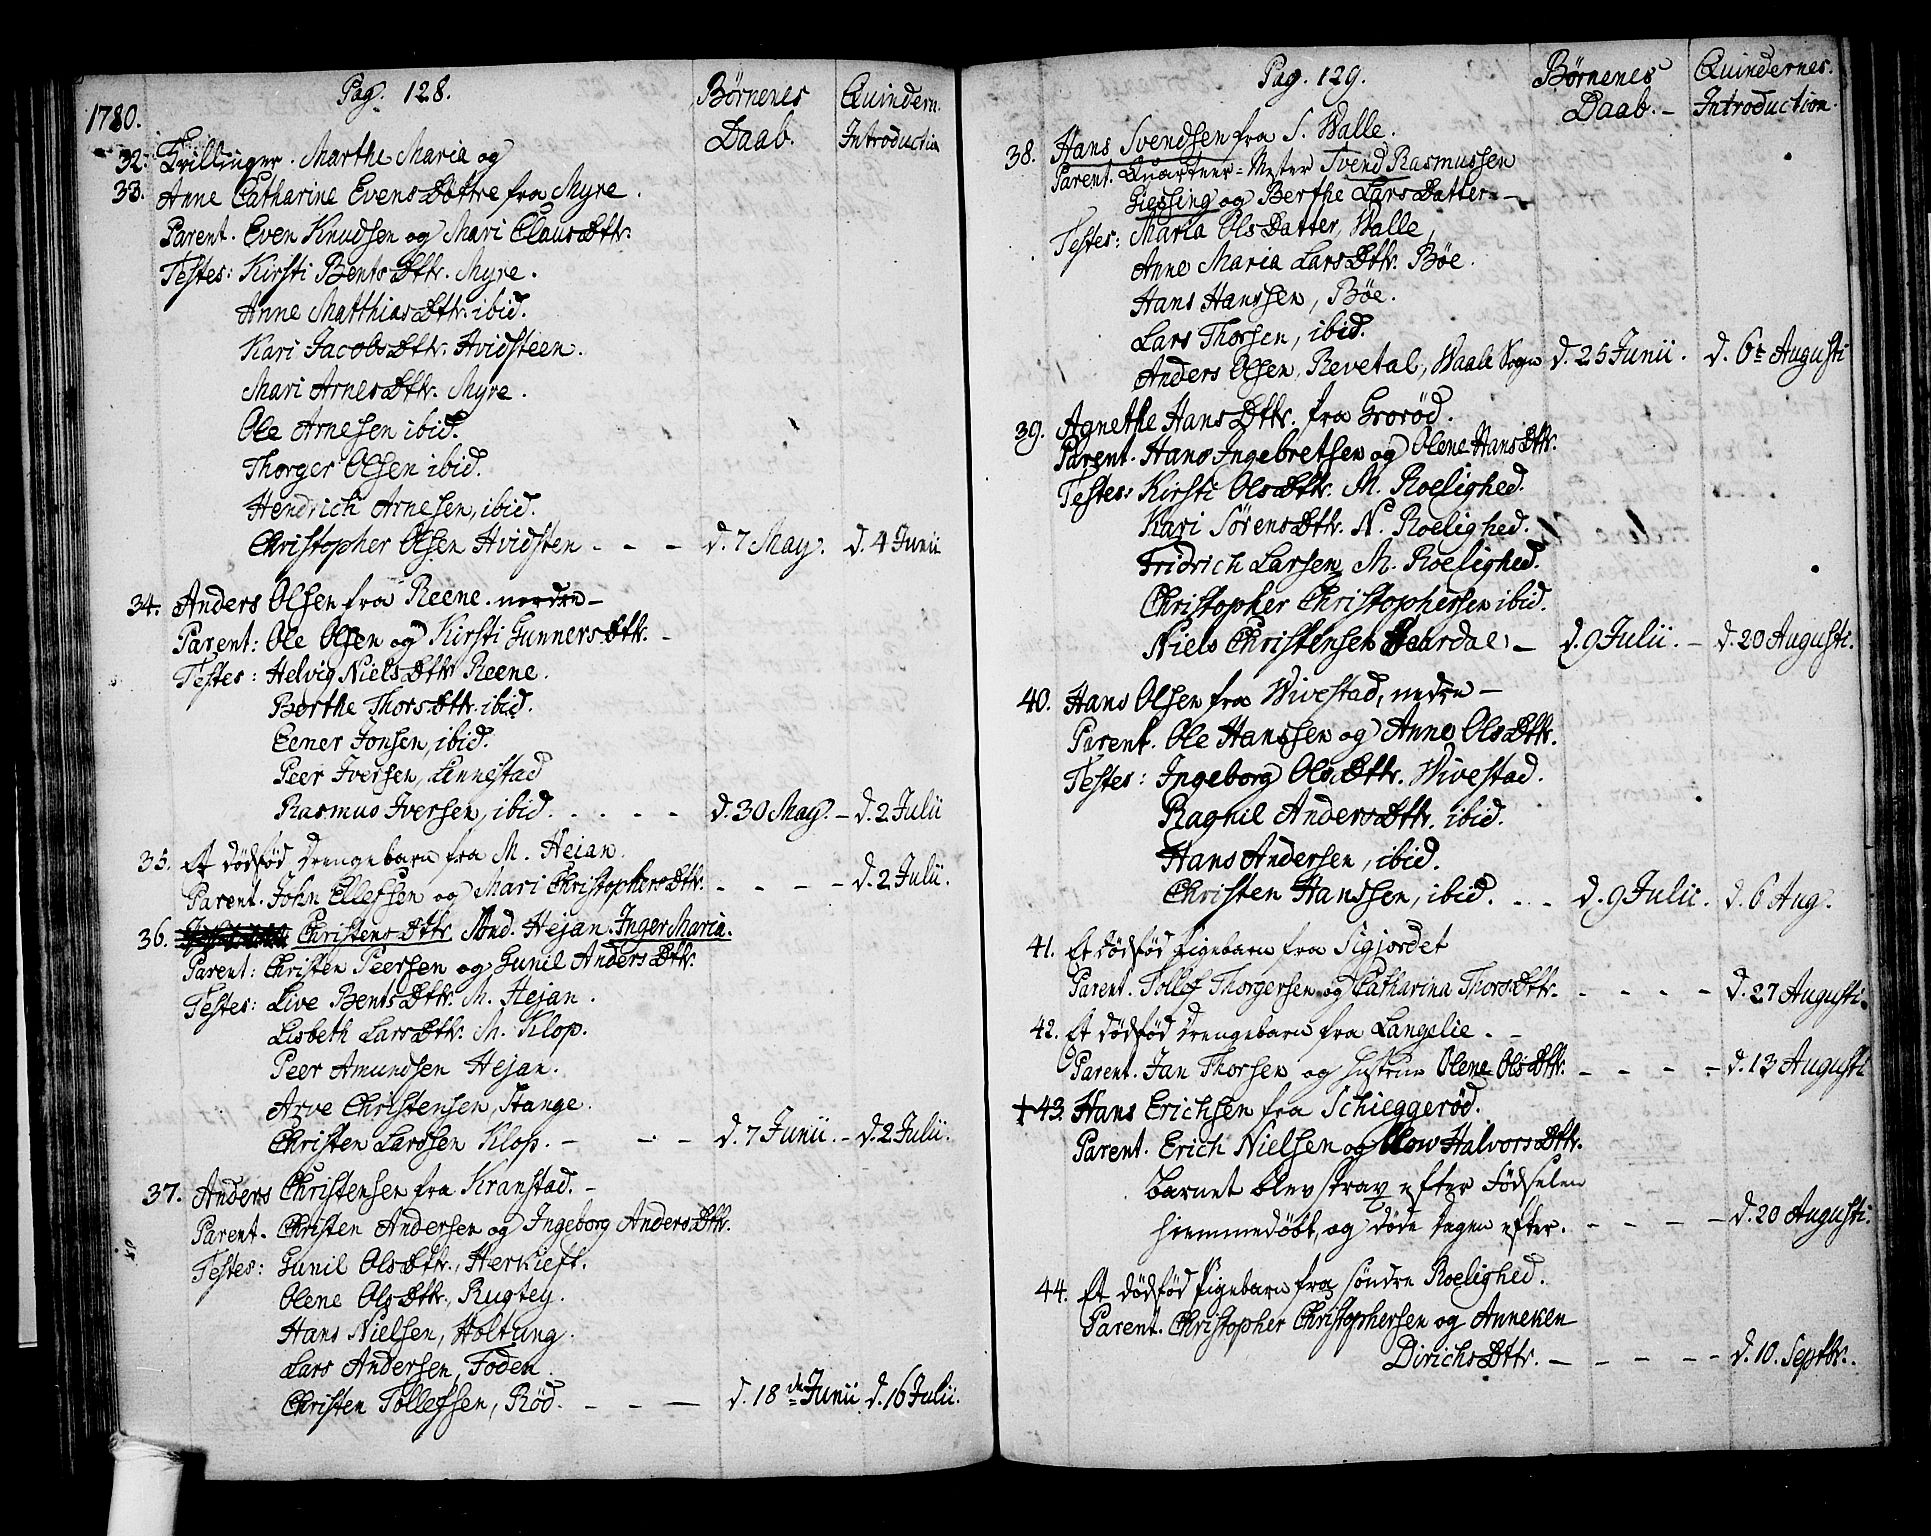 1780.
Pag. 128.
Børnenes Daab.
Quindern. Introduction
32. Tvillinger. Marthe Maria og
33. Anne Catharine Evens Døttre fra Myre.
Parent. Even Knudsen og Mari Claus Dttr.
Testes: Kirsti Bents Dttr. Myre.
Anne Matthias Dttr. ibid.
Kari Jacobs Dttr. Hvidsteen.
Mari Arnes Dttr. Myre.
Ole Arnesen ibid.
Thorger Olsen ibid.
Hendrich Arnesen, ibid.
Christopher Olsen Hvidsten - - - d. 7 May. d. 4 Junii
34. Anders Olsen fra Reene. nordre -
Parent: Ole Olsen og Kirsti Gunners Dttr. -
Testes: Helvig Niels Dttr Reene.
Berthe Thors Dttr. ibid.
Eener Jonsen, ibid.
Peer Iversen, Linnestad
Rasmus Iversen, ibid. . . . - - d. 30 May. - d. 2 Julii
35. Et dødfød drengebarn fra M. Hejan.
Parent. John Ellefsen og Mari Christophers Dttr. - - - - d. 2 Julii.
36. Christens Dttr Hejan. Inger Maria.
Parent: Christen Peersen og Gunil Anders Dttr.
Testes: Live Bents Dttr. M. Hejan.
Lisbeth Lars Dttr. M. Klop.
Peer Amundsen Hejan.
Arve Christensen, Stange.
Christen Larssen Klop. - - - d. 7 Junii. - d. 2 Julii.
37. Anders Christensen fra Kranstad. -
Parent. Christen Andersen og Ingeborg Anders Dttr.
Testes: Gunil Ols Dttr., Herkieft.
Olene Ols Dttr., Rugtey.
Hans Nielsen, Holtung.
Lars Andersen, Foden.
Christen Tollefsen, Rød. - - - d. 18 de Junii d. 16 Julii.
Pag. 129.
Børnenes Daab. -
Quindernes. Introduction.
38. Hans Svendsen fra S. Walle.
Parent. Quarteer-Mester Svend Rasmussen
Giessing og Berthe Lars Datter. -
Testes: Maria Ols Datter, Walle,
Anne Maria Lars Dttr. Bøe.
Hans Hanssen, Bøe.
Lars Thorsen, ibid.
Anders Olsen, Revetal, Waale Sogn d. 25 Junii. d. 6te Augusti
39. Agnethe Hans Dttr. fra Grorød.
Parent. Hans Ingebretsen og Olene Hans Dttr.
Testes: Kirsti Ols Dttr. M. Roelighed.
Kari Sörens Dttr. N. Roelighed.
Fridrich Larsen M. Roelighed.
Christopher Christophersen ibid.
Niels Christensen - d. 9 Julii. - d. 20 Augusti.
40. Hans Olsen fra Wivestad, nedre -
Parent. Ole Hanssen og Anne Ols Dttr.
Testes: Ingeborg Ols Dttr. Wivestad.
Ragnil Anders Dttr. ibid.
Hans Andersen, ibid.
Christen Hanssen, ibid. . - - d. 9 Julii. d. 6 Aug.
41. Et dødfød Pigebarn fra Sigjordet
Parent. Tollef Thorgersen og Catharina Thors Dttr. - - - - d. 27 Augusti.
42. Et dødfød drengebarn fra Langelie. -
Parent. Jan Thorsen og Hustrue Olene Ols Dttr. - - - - d. 13 Augusti
+ 43. Hans Erichsen fra Schieggerød.
Parent. Erich Nielsen og Halvors Dttr.
Barnet blev strax efter Fødselen
hiemmedøbt, og døde dagen efter. - - - - d. 20 Augusti.
44. Et dødfød Pigebarn fra søndre Roelighed.
Parent. Christopher Christophersen og Anneken
Dirichs Dttr. - - - - - d. 10. Septbr.